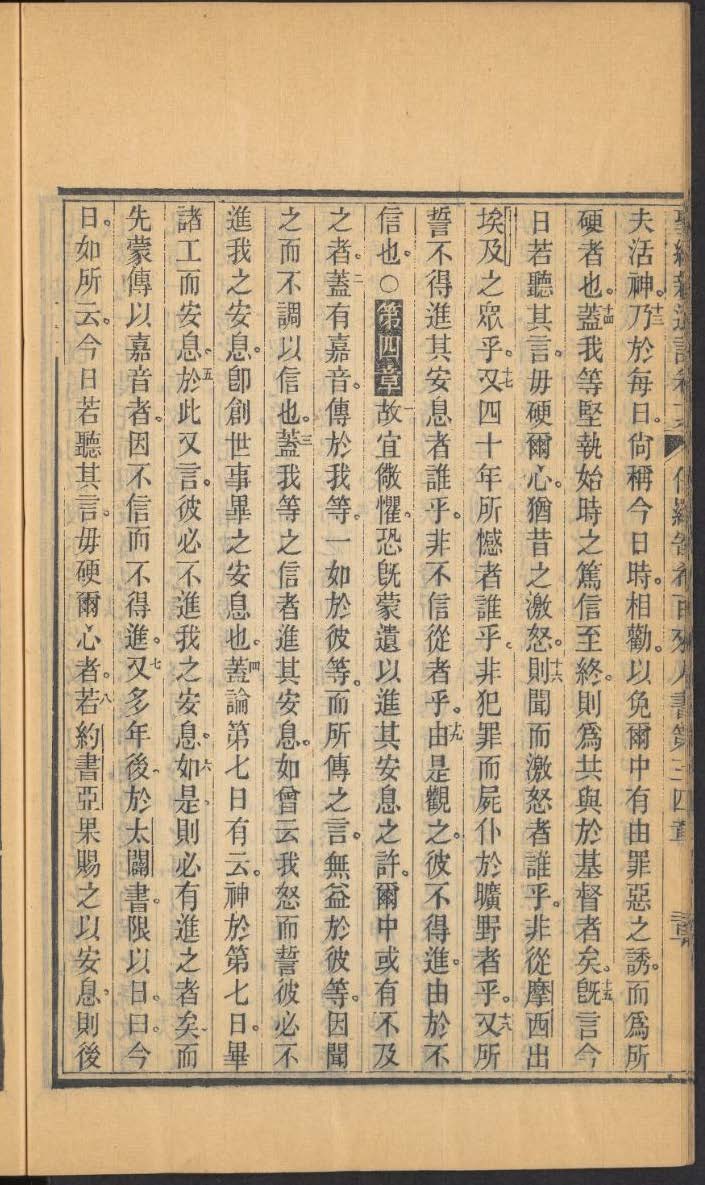 夫活神。十三乃於每日。尙稱今日時。相勸。以免爾中有由罪惡之誘。而爲所
硬者也。十四蓋我等堅執始時之篤信至終。則爲共與於基督者矣。十五旣言今
日若聽其言。毋硬爾心。猶昔之激怒。十六則聞而激怒者誰乎。非從摩西出
埃及之眾乎。十七又四十年所憾者誰乎。非犯罪而屍仆於曠野者乎。十八又所
誓不得進其安息者誰乎。非不信從者乎。十九由是觀之。彼不得進。由於不
信也。○第四章一故宜儆懼。恐旣蒙遺以進其安息之許。爾中或有不及
之者。二蓋有嘉音。傳於我等。一如於彼等。而所傳之言。無益於彼等。因聞
之而不調以信也。三蓋我等之信者進其安息。如曾云我怒而誓彼必不
進我之安息。卽創世事畢之安息也。四蓋論第七日有云。神於第七日。畢
諸工而安息。五於此又言。彼必不進我之安息。六如是、則必有進之者矣、而
先蒙傳以嘉音者。因不信而不得進。七又多年後、於太闢書。限以日。曰。今
日。如所云。今日若聽其言。毋硬爾心者。八若約書亞果賜之以安息、則後